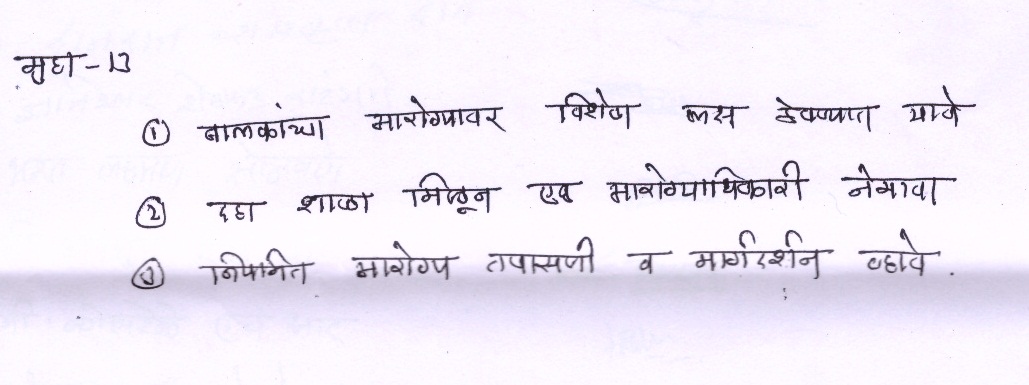 मुद्दा - 13
① बालकांच्या आरोग्यावर विशेष लक्ष ठेवण्यात यावे
② दहा शाळा मिळून एक आरोग्याधिकारी नेमावा
③ नियमित आरोग्य तपासणी व मार्गदर्शन व्हावे.